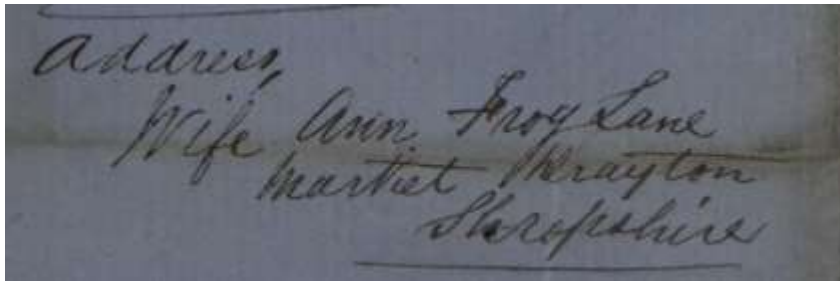 Address,
Wife Ann, Frog Lane
Market Drayton
Shropshire